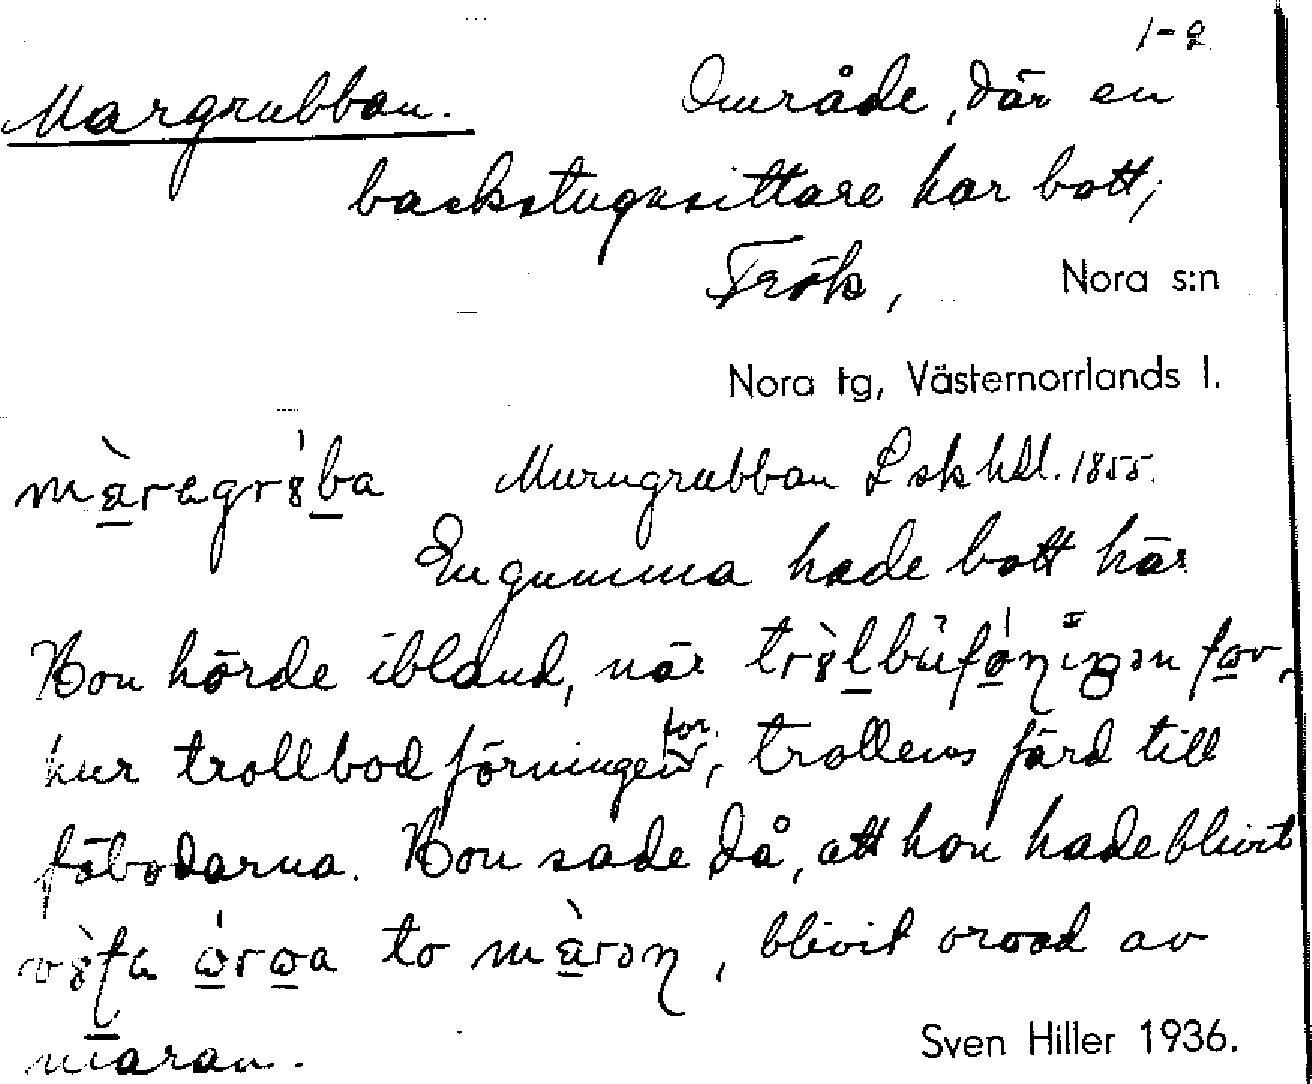 1-2
Margrubban. Område, där en
backstugusittare har bott,
Trök, Nora s:n
Nora tg, Västernorrlands l.
Murugrubban L sk hdl. 1855.
En gumma hade bott här
Hon hörde ibland, när
hur trollbodförningen for, trollens färd till
fäbodarna. Hon sade då, att hon hade blivit
to , blivit oroad av
maran. Sven Hiller 1936.